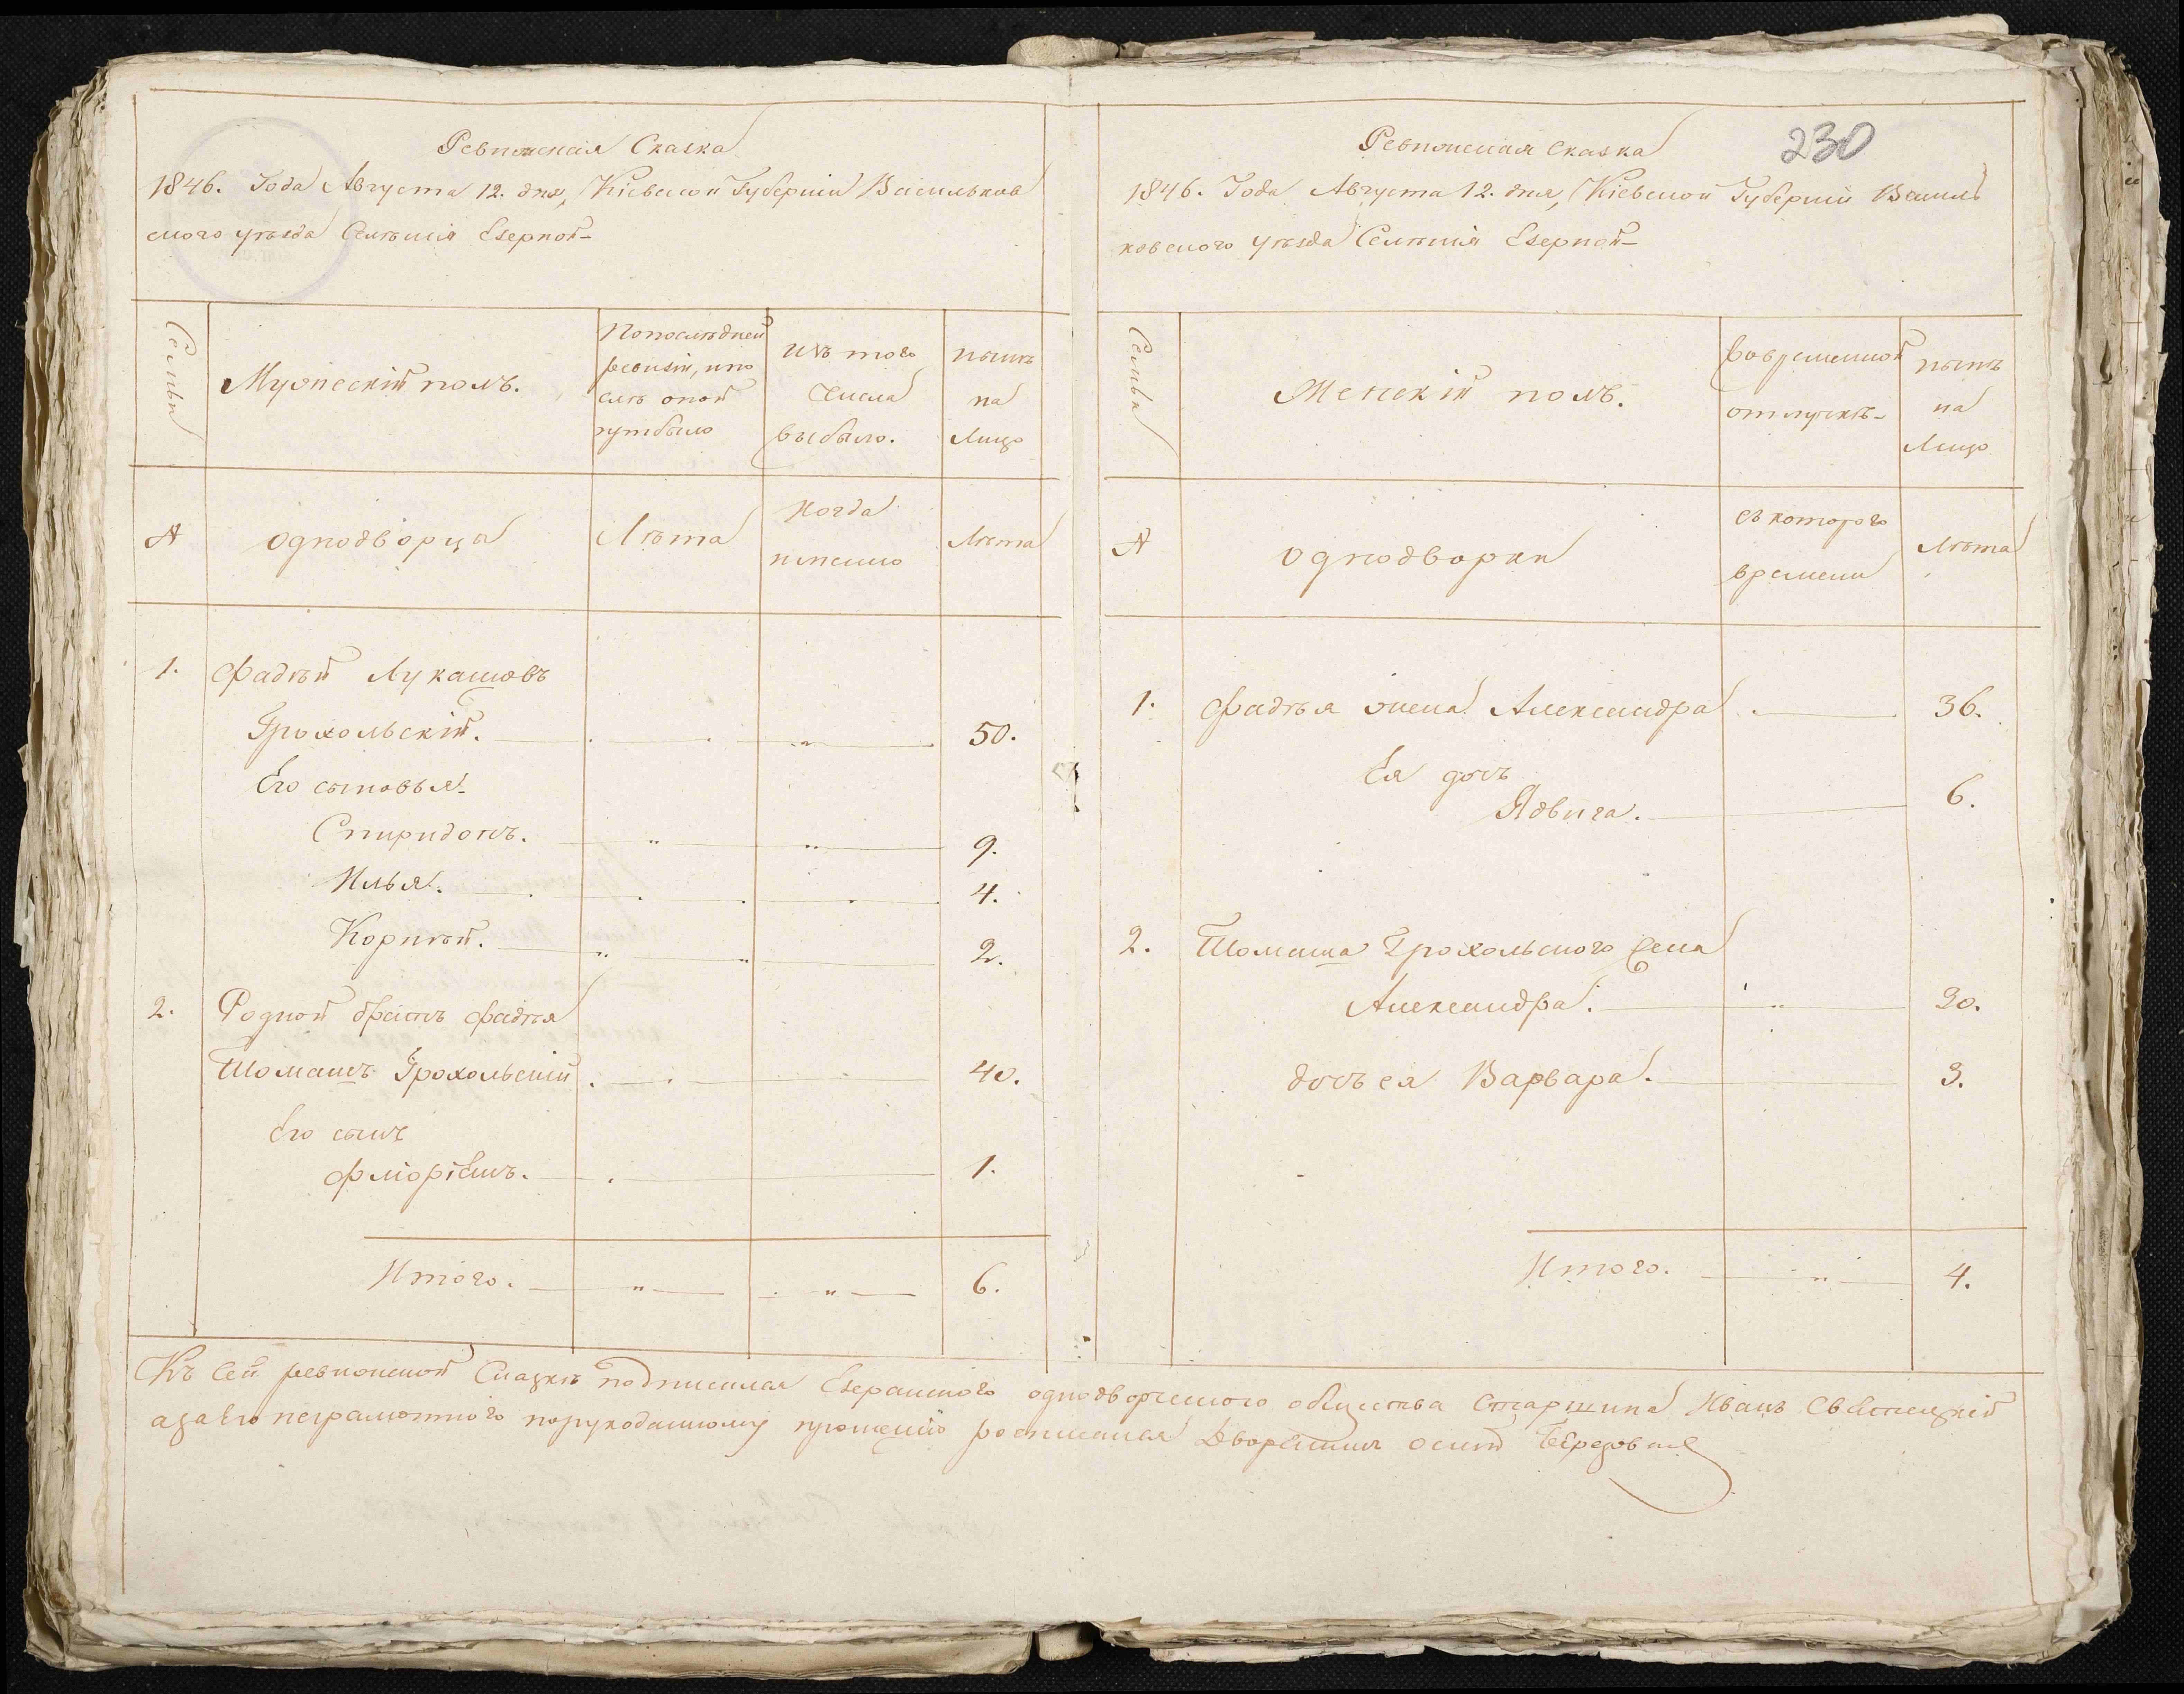 Ревижская Сказка
1846. Года Августа 12. дня, Кіевской Губерніи Васильков
ского уѣзда Селѣнія Езерной
Семьи
Мужескій полъ.
По послѣдней
ревизіи, и по
слѣ оной
прибыло
Изъ того
Числа
выбыло.
нынѣ
на
Лицо
А
однодворца
Лѣта
Когда
имянно
Лѣта
1. Фадѣй Лукашовъ
Грохольскій. 50.
Его сыновья
Спиридонъ. 9.
Илья. 4.
Корнѣй. 2.
2. Родной братъ Фадѣя
Томашъ Грохольскій 40.
Его сынъ
Флоріянъ. 1.
Итого. 6.
230
Ревижская Сказка
1846. Года Августа 12. дня, Кіевской Губерніи Василь
ковского уѣзда Селѣнія Езерной
Семьи
Женскій полъ.
во временной
отлучкѣ
нынѣ
на
Лицо
А
однодворки
съ которого
времени
Лѣта
1. Фадѣя жена Александра 36.
Ея дочь
Ядвига. 6.
2. Томаша Грохольского жена
Александра. 30.
дочь ея Варвара. 3.
Итого. 4.
Къ Сей ревижской Сказкѣ подписался Езеранского однодворческого общества Старшина Иванъ
а за Его неграмотного по рукоданному прошенію росписался Дворянинъ Осипъ